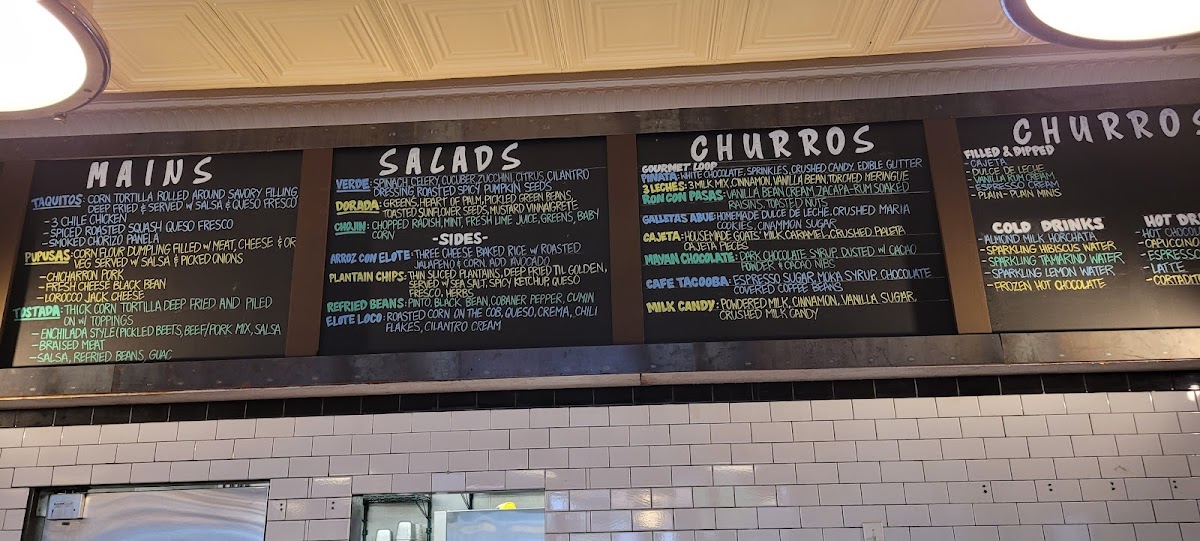 MAINS
TAQUITOS: CORN TORTILLA ROLLED AROUND SAVORY FILLING
DEEP FRIED & SERVED W/ SALSA & QUESO FRESCO
- 3 CHILE CHICKEN
- SPICED ROASTED SQUASH QUESO FRESCO
- SMOKED CHORIZO PANELA
PUPUSAS: CORN FLOUR DUMPLING FILLED W/ MEAT, CHEESE & OR
VEG SERVED W/ SALSA & PICKED ONIONS
- CHICHARRON PORK
- FRESH CHEESE BLACK BEAN
- LOROCCO JACK CHEESE
TOSTADA: THICK CORN TORTILLA DEEP FRIED AND PILED
ON W/ TOPPINGS
- ENCHILADA STYLE (PICKLED BEETS, BEEF/PORK MIX, SALSA
- BRAISED MEAT
- SALSA, REFRIED BEANS, GUAC
SALADS
VERDE: SPINACH, CELERY CUCUBER, ZUCCHINI, CITRUS, CILANTRO
DRESSING ROASTED SPICY PUMPKIN SEEDS
DORADA: GREENS, HEART OF PALM, PICKLED GREEN BEANS,
TOASTED SUNFLOWER SEEDS, MUSTARD VINNAIGRETTE
CHOJIN: CHOPPED RADISH, MINT, FRESH LIME JUICE, GREENS, BABY
CORN
-SIDES-
ARROZ CON ELOTE: THREE CHEESE BAKED RICE W/ ROASTED
JALAPEÑO & CORN ADD AVOCADO
PLANTAIN CHIPS: THIN SLICED PLANTAINS, DEEP FRIED TIL GOLDEN,
SERVED W/ SEA SALT, SPICY KETCHUP, QUESO
FRESCO, HERBS
REFRIED BEANS: PINTO, BLACK BEAN, COBANER PEPPER, CUMIN
ELOTE LOCO: ROASTED CORN ON THE COB, QUESO, CREMA, CHILI
FLAKES, CILANTRO CREAM
CHURROS
GOURMET LOOP
PIÑATA: WHITE CHOCOLATE, SPRINKLES, CRUSHED CANDY, EDIBLE GLITTER
3 LECHES: 3 MILK MIX, CINNAMON, VANILLA BEAN TORCHED MERINGUE
RON CON PASAS: VANILLA BEAN CREAM ZACAPA-RUM SOAKED
RAISINS, TOASTED NUTS
GALLETAS ABUE: HOMEMADE DULCE DE LECHE, CRUSHED MARIA
COOKIES, CINAMMON SUGAR
CAJETA: HOUSEMADE GOATS' MILK CARAMEL, CRUSHED PALETA
CAJETA PIECES
MAYAN CHOCOLATE: DARK CHOCOLATE SYRUP, DUSTED W/ CACAO
POWDER & CACAO NIBS
CAFE TACOOBA: ESPRESSO SUGAR, MOKA SYRUP, CHOCOLATE
COVERED COFFEE BEANS
MILK CANDY: POWDERED MILK, CINNAMON, VANILLA SUGAR,
CRUSHED MILK CANDY
CHURROS
FILLED & DIPPED
- CAJETA
- DULCE DE LECHE
- VANILLA RUM CREAM
- ESPRESSO CREAM
- PLAIN- PLAIN MINIS
COLD DRINKS
- ALMOND MILK HORCHATA
- SPARKLING HIBISCUS WATER
- SPARKLING TAMARIND WATER
- SPARKLING LEMON WATER
- FROZEN HOT CHOCOLATE
HOT
- HOT
- CAPPUCCINO
ESPRESSO
- LATTE